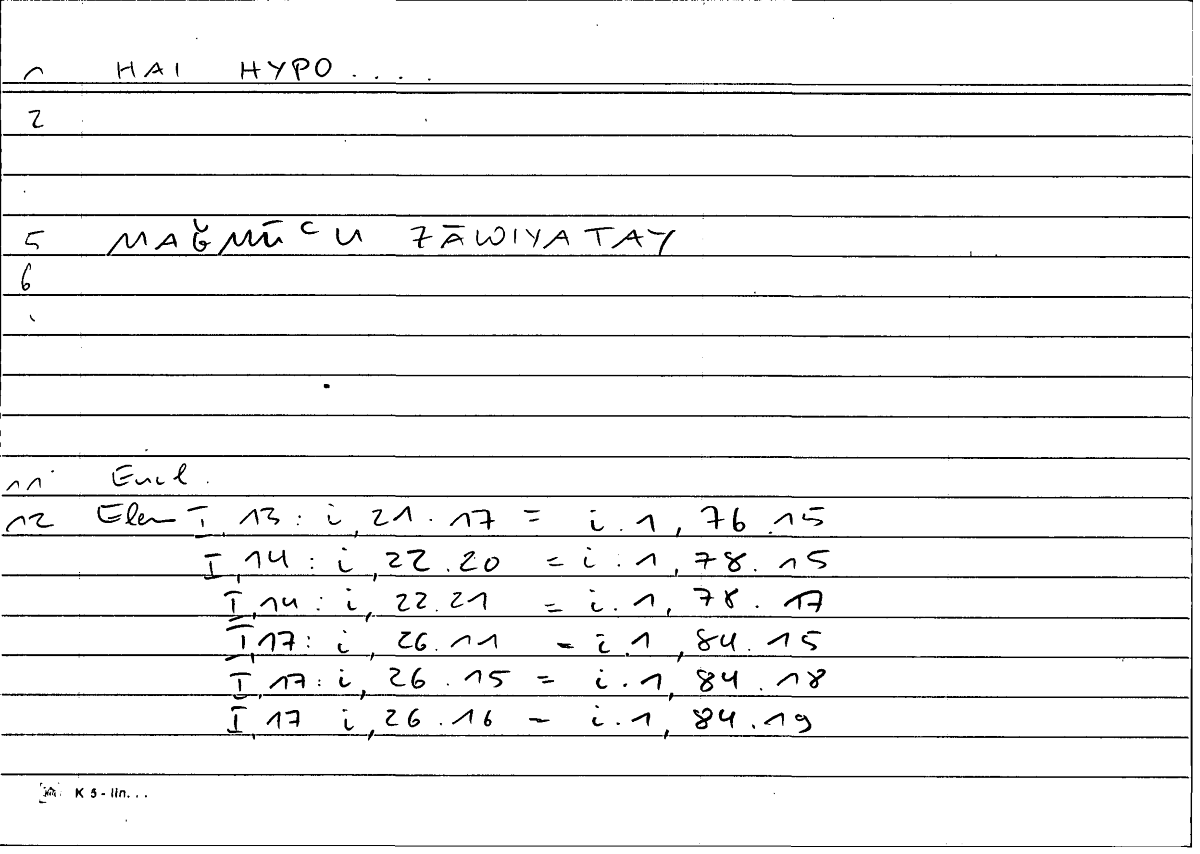 1 HAI HYPO....
2
5 MAǦMŪʿU ZĀWIYATAY
6
11 Eucl.
12 Elem I, 13 : i, 21.17 = i.1, 76.15
I, 14 : i, 22.20 = i.1, 78.15
I, 14 : i, 22.21 = i.1, 78.17
I, 17 : i, 26.11 = i.1, 84.15
I, 17 : i, 26.15 = i.1, 84.18
I, 17 i, 26.16 = i.1, 84.19
K 5 - lin...